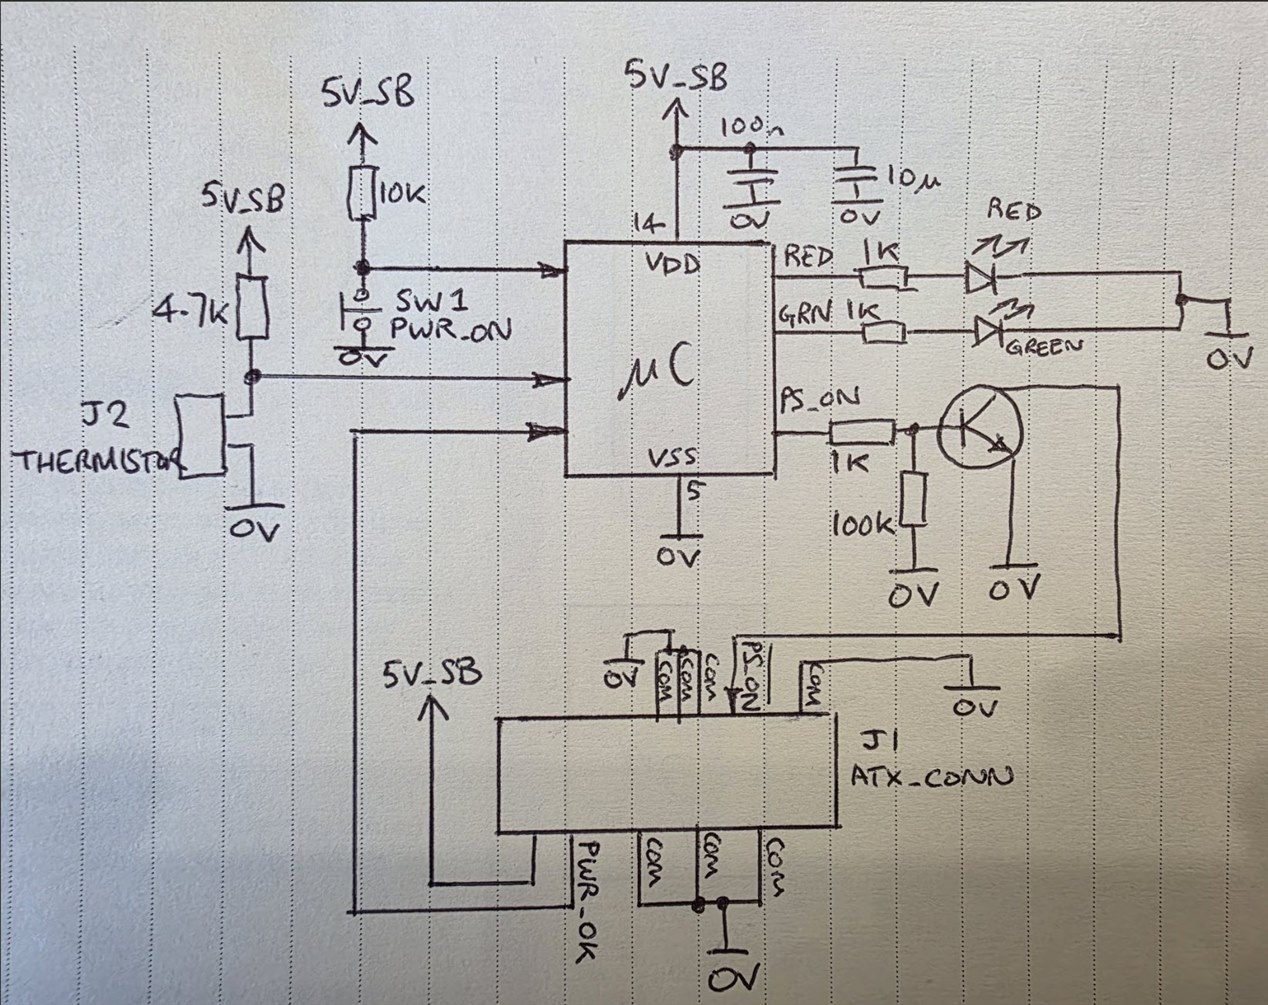 5V_SB
5V_SB
100n
10K
10µ
5V_SB
0V
0V
RED
14
VDD
RED
1K
4.7K
SW1
PWR_ON
GRN
1K
GREEN
0V
0V
µC
J2
PS_ON
THERMISTOR
VSS
1K
5
100K
0V
0V
0V
0V
5V_SB
0V
COM
COM
COM
PS_ON
COM
0V
J1
ATX_CONN
PWR_OK
COM
COM
COM
0V